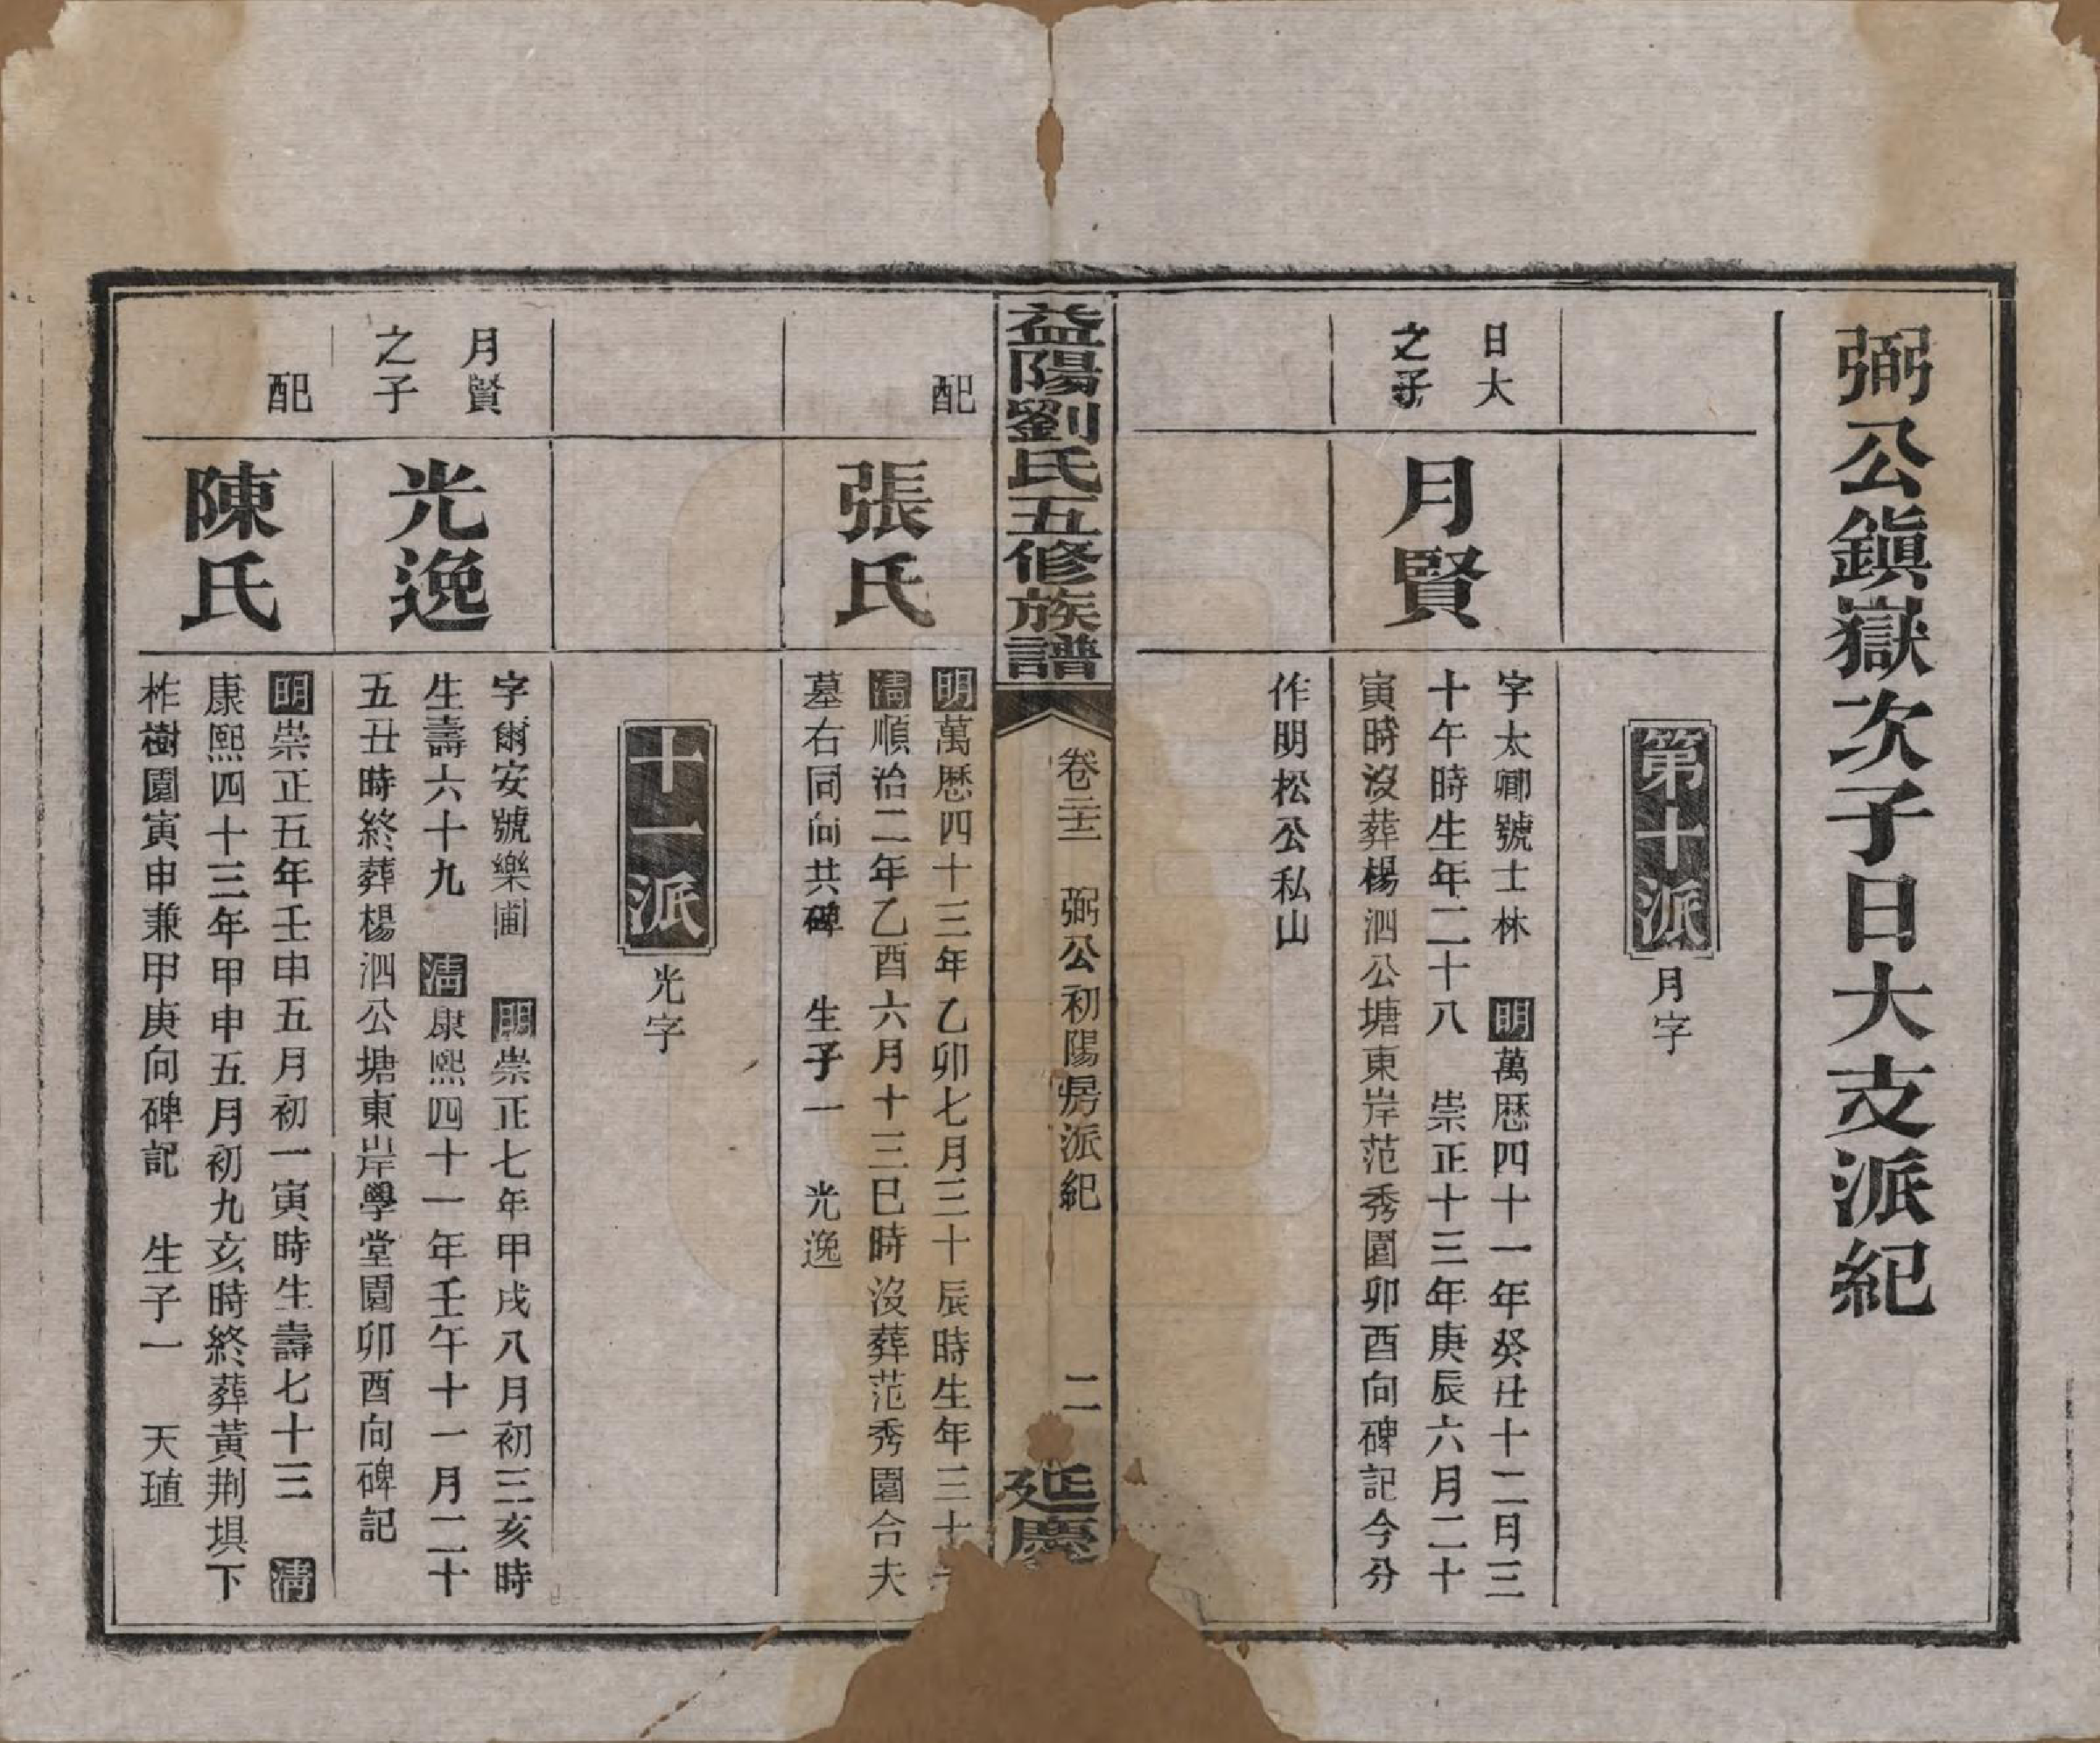 弼公鎭嶽次子日大支派紀
第十派
月字
日大
之子
月賢
字太卿號士林　明萬歴四十一年癸丑十二月三
十午時生年二十八　崇正十三年庚辰六月二十
寅時沒葬楊泗公塘東岸范秀園卯酉向碑記今分
作明松公私山
益陽劉氏五修族譜
卷二十二　弼公初陽房派紀
二
延慶
配
張氏
明萬歴四十三年乙卯七月三十辰時生年三十
淸順治二年乙酉六月十三巳時沒葬范秀園合夫
墓右同向共碑　生子一　光逸
十一派
光字
月賢
之子
光逸
字爾安號樂圃　明崇正七年甲戌八月初三亥時
生壽六十九　淸康熙四十一年壬午十一月二十
五丑時終葬楊泗公塘東岸學堂園卯酉向碑記
配
陳氏
明崇正五年壬申五月初一寅時生壽七十三　淸
康熙四十三年甲申五月初九亥時終葬黃荆垻下
柞樹園寅申兼甲庚向碑記　生子一　天瑾